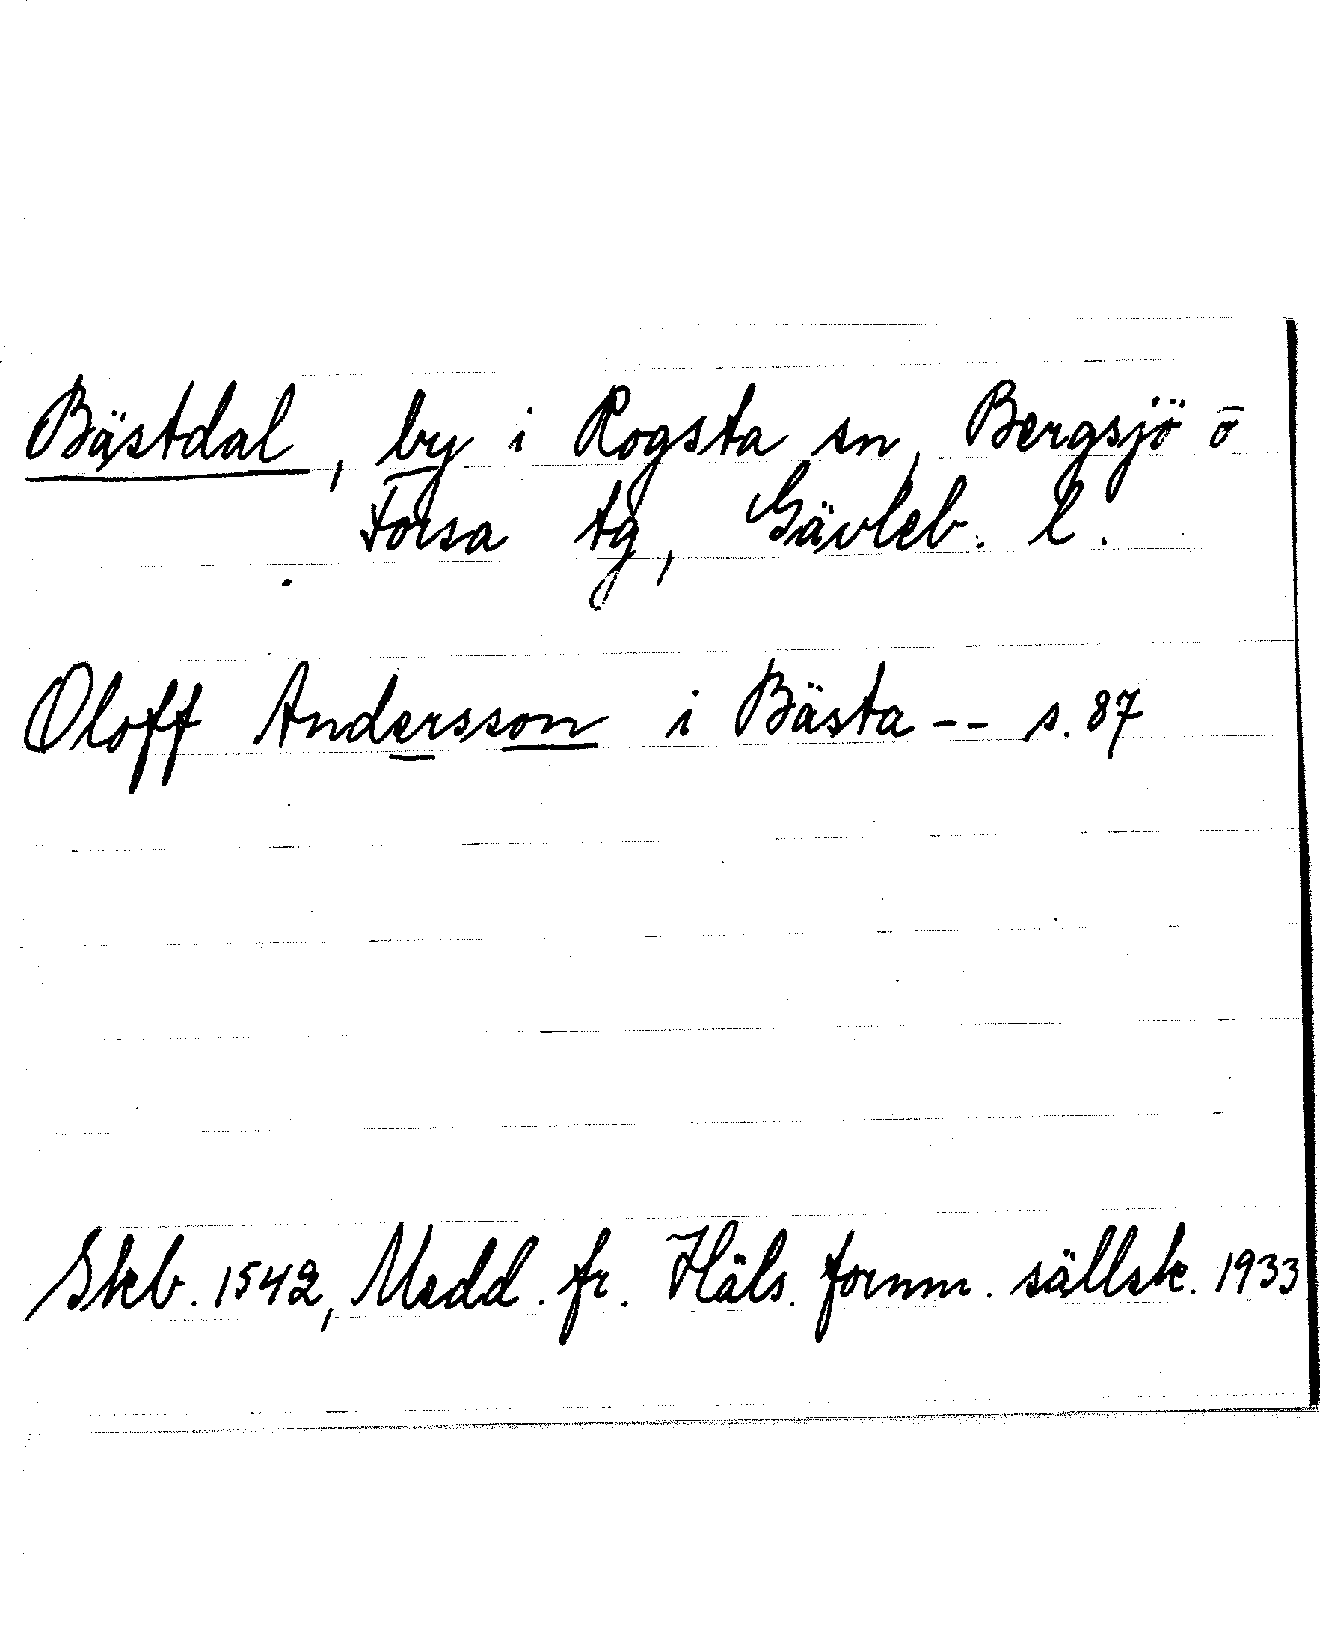 Bästdal, by i Rogsta sn, Bergsjö o
Forsa tg, Gävleb. l.
Oloff Andersson i Bästa -- s. 87
Skb. 1542, Medd. fr. Häls. fornm. sällsk. 1933